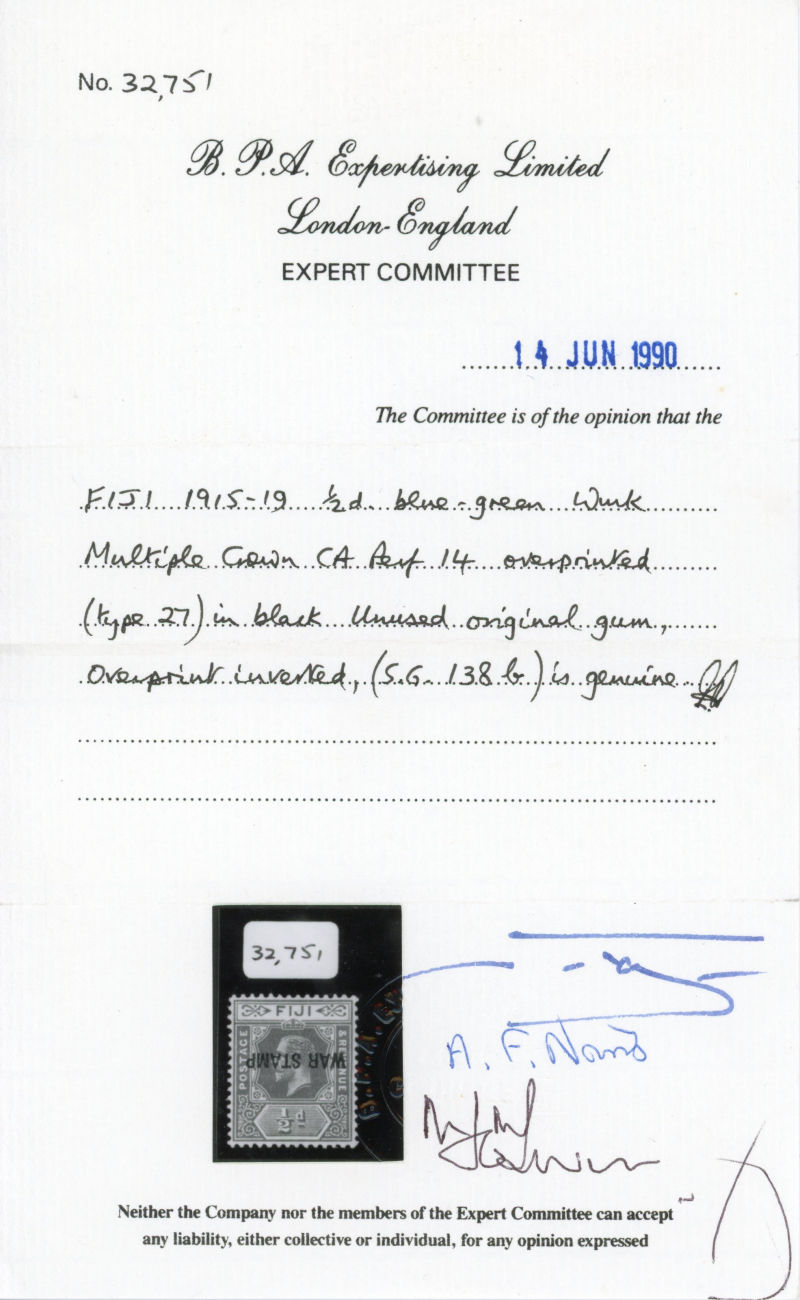 No. 32,751
B. P.A. Expertising Limited
London-England
EXPERT COMMITTEE
14 JUN 1990
The Committee is of the opinion that the
FIJI 1915-19 ½d. blue-green Wmk
Multiple Crown CA Perf 14 overprinted
(type 27) in black Unused original gum,
Overprint inverted, (S.G. 138 b) is genuine
32,751
FIJI
POSTAGE
& REVENUE
WAR STAMP
½d
A. F. Norris
Neither the Company nor the members of the Expert Committee can accept
any liability, either collective or individual, for any opinion expressed